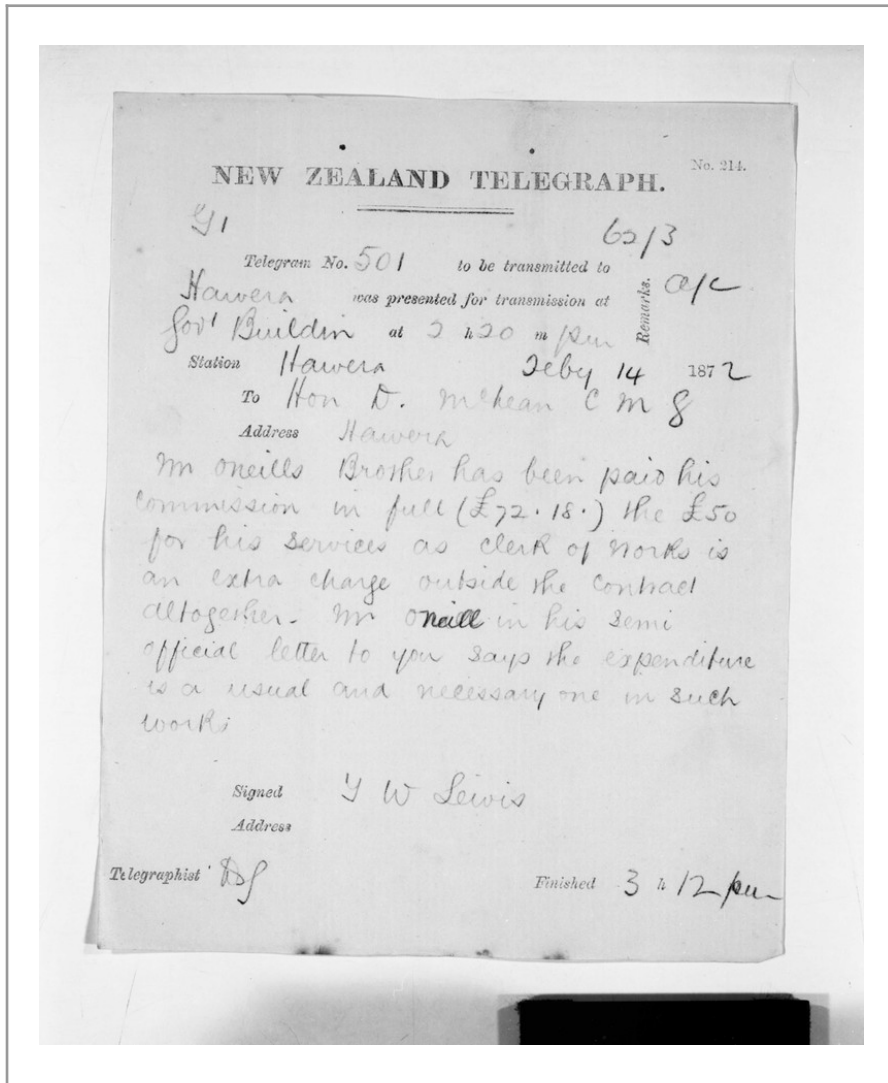 No. 214.
NEW ZEALAND TELEGRAPH.
62/3
Telegram No. 501 to be transmitted to
Hawera was presented for transmission at
Govt Buildin at 2 h 20 m pm
Remarks. a/c
Station Hawera Feby 14 1872
To Hon D. McLean C M G
Address Hawera
Mr oneills Brother has been paid his
Commission in full (£72.18.) the £50
for his services as clerk of works is
an extra charge outside the contract
altogether. Mr oneill in his semi
official letter to you says the expenditure
is a usual and necessary one in such
works
Signed W Lewis
Address
Telegraphist
Finished 3 h 12 pm